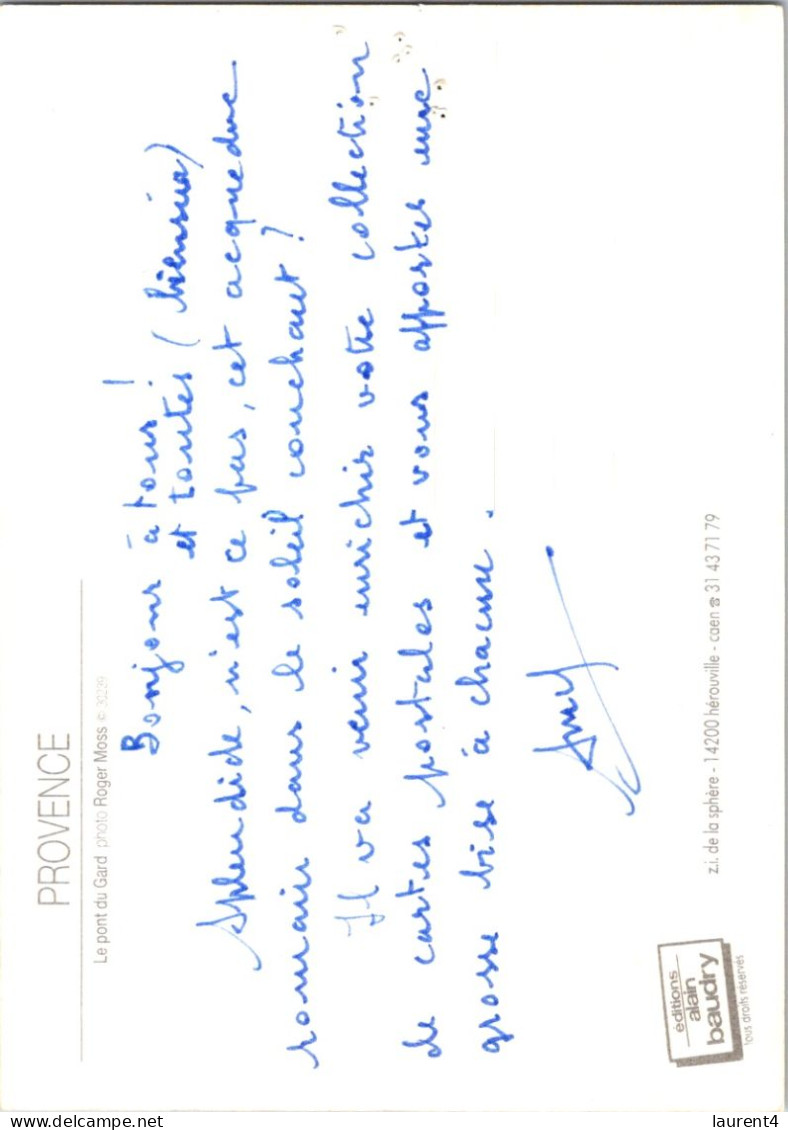 PROVENCE
Le pont du Gard photo Roger Moss © 30239
Bonjour à tous!
et toutes (biensûr)
Splendide, n'est ce pas, cet acqueduc
romain dans le soleil couchant?
Il va venir enrichir votre collection
de cartes postales et vous apporter une
grosse bise à chacune.
éditions
alain
baudry
tous droits réservés
z.i. de la sphère - 14200 hérouville - caen ☎ 31 43 71 79
delcampe.net
laurent4